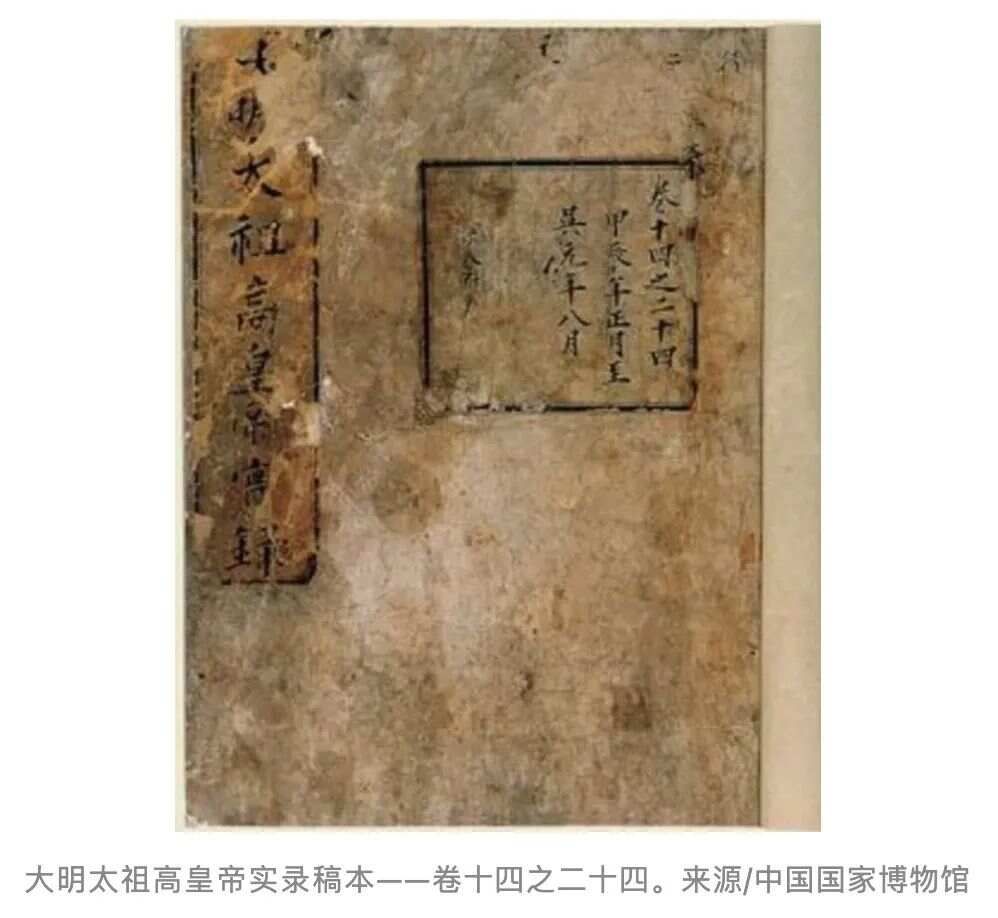 卷十四之二十四
甲辰年正月至
吳元年八月
大明太祖高皇帝實錄
大明太祖高皇帝实录稿本——卷十四之二十四。来源/中国国家博物馆